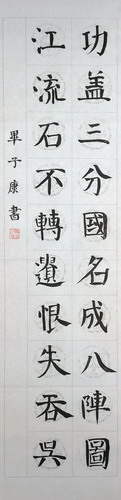 功盖三分國名成八陣圖
江流石不轉遺恨失吞吳
畢子康書